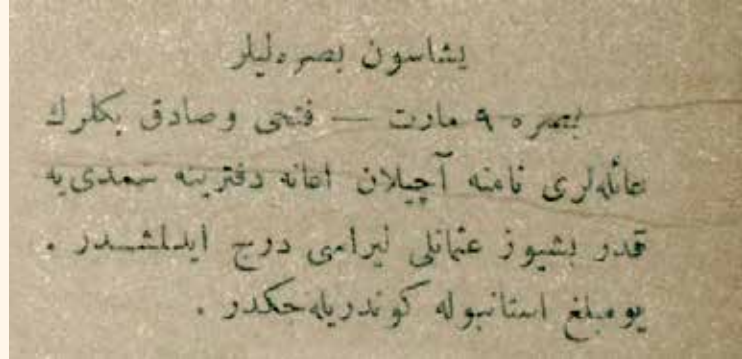 یشاسون بصره‌لیلر
بصره ۹ مارت — فتحی و صادق بکلرك
عائله‌لری نامنه آچیلان اعانه دفترینه شمدی‌یه
قدر بشیوز عثمانلی لیراسی درج ایدلمشـدر .
بومبلغ استانبوله کوندریله‌جکدر .